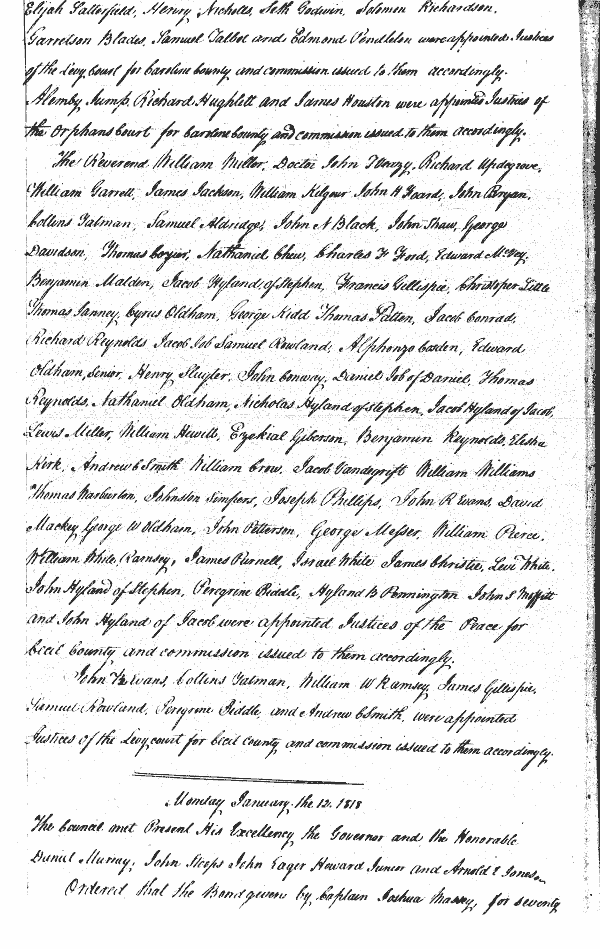 Elijah Satterfield, Henry Nicholls, Seth Godwin, Solomon Richardson,
Garretson Blades, Samuel Talbot and Edmond Pendleton were appointed Justices
of the Levy Court for Caroline County and commission issued to them accordingly.
Alemby Jump, Richard Hughlett and James Houston were appointed Justices of
the Orphans Court for Caroline County and commission issued to them accordingly.
The Reverend William Miller, Doctor John Richard Updegrove,
William Garrett, James Jackson, William Kilgour John H Foard, John Bryan,
Collins Tatman, Samuel Aldridge, John N Black, John Shaw, George
Davidson, Thomas Nathaniel Chew, Charles F Ford, Edward McVey,
Benjamin Malden, Jacob Hyland of Stephen, Francis Gillispie, Christoper Little
Thomas Janney, Cyrus Oldham, George Kidd Thomas Patten, Jacob Conrad,
Richard Reynolds Jacob Job Samuel Rowland, Alphonzo Cosden, Edward
Oldham, Senior, Henry Sluyter, John Conway, Daniel Job of Daniel, Thomas
Reynolds, Nathaniel Oldham, Nicholas Hyland of Stephen, Jacob Hyland of Jacob,
Lewis Miller, William Hewitt, Ezekial Giberson, Benjamin Reynolds, Elisha
Kirk, Andrew C Smith William Crow, Jacob Vandegrift William Williams
Thomas Warburton, Johnson Simpers, Joseph Phillips, John R Evans, David
Mackey George W Oldham, John Patterson, George Messer, William Pierce,
William White, Ramsey, James Purnell, Israel White James Christie, Levi White,
John Hyland of Stephen, Peregrine Biddle, Hyland B Pennington John S Moffitt
and John Hyland of Jacob were appointed Justices of the Peace for
Cecil County and commission issued to them accordingly.
John Evans, Collins Tatman, William W Ramsey, James Gillispie,
Samuel Rowland, Peregrine Biddle, and Andrew C Smith, were appointed
Justices of the Levy court for Cecil County and commission issued to them accordingly.
Monday January the 12. 1818
The Council met Present His Excellency the Governor and the Honorable
Daniel Murray, John Stoops John Eager Howard Junior and Arnold E Jones
Ordered that the Bond given by Captain Joshua Massey, for seventy